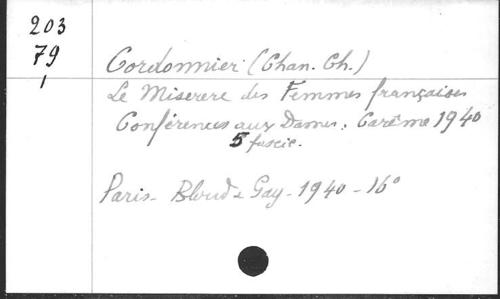 203
79
1
Cordonnier (Chan. Ch.)
Le Miserere des Femmes françaises
Conférences aux Dames. Carême 1940
5 fascic.
Paris - Bloud & Gay - 1940 - 16°